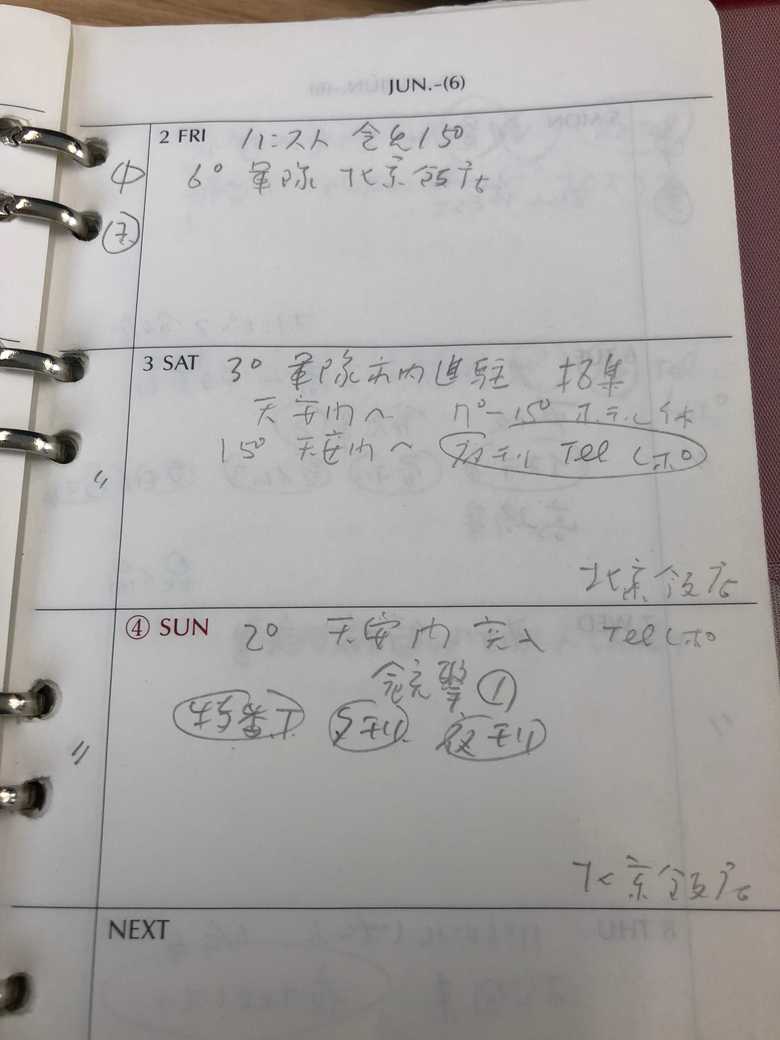 JUN.-(6)
2 FRI ハンスト 会見 15°
中 6° 軍隊 北京飯店
3 SAT 3° 軍隊市内進駐 招集
天安門へ 11°-15° ホテル休
〃 15° 天安門へ 夜刊 Tel レポ
北京飯店
④ SUN 2° 天安門突入 Tel レポ
銃撃 ①
特番丁 夕刊 夜刊
〃
北京飯店
NEXT